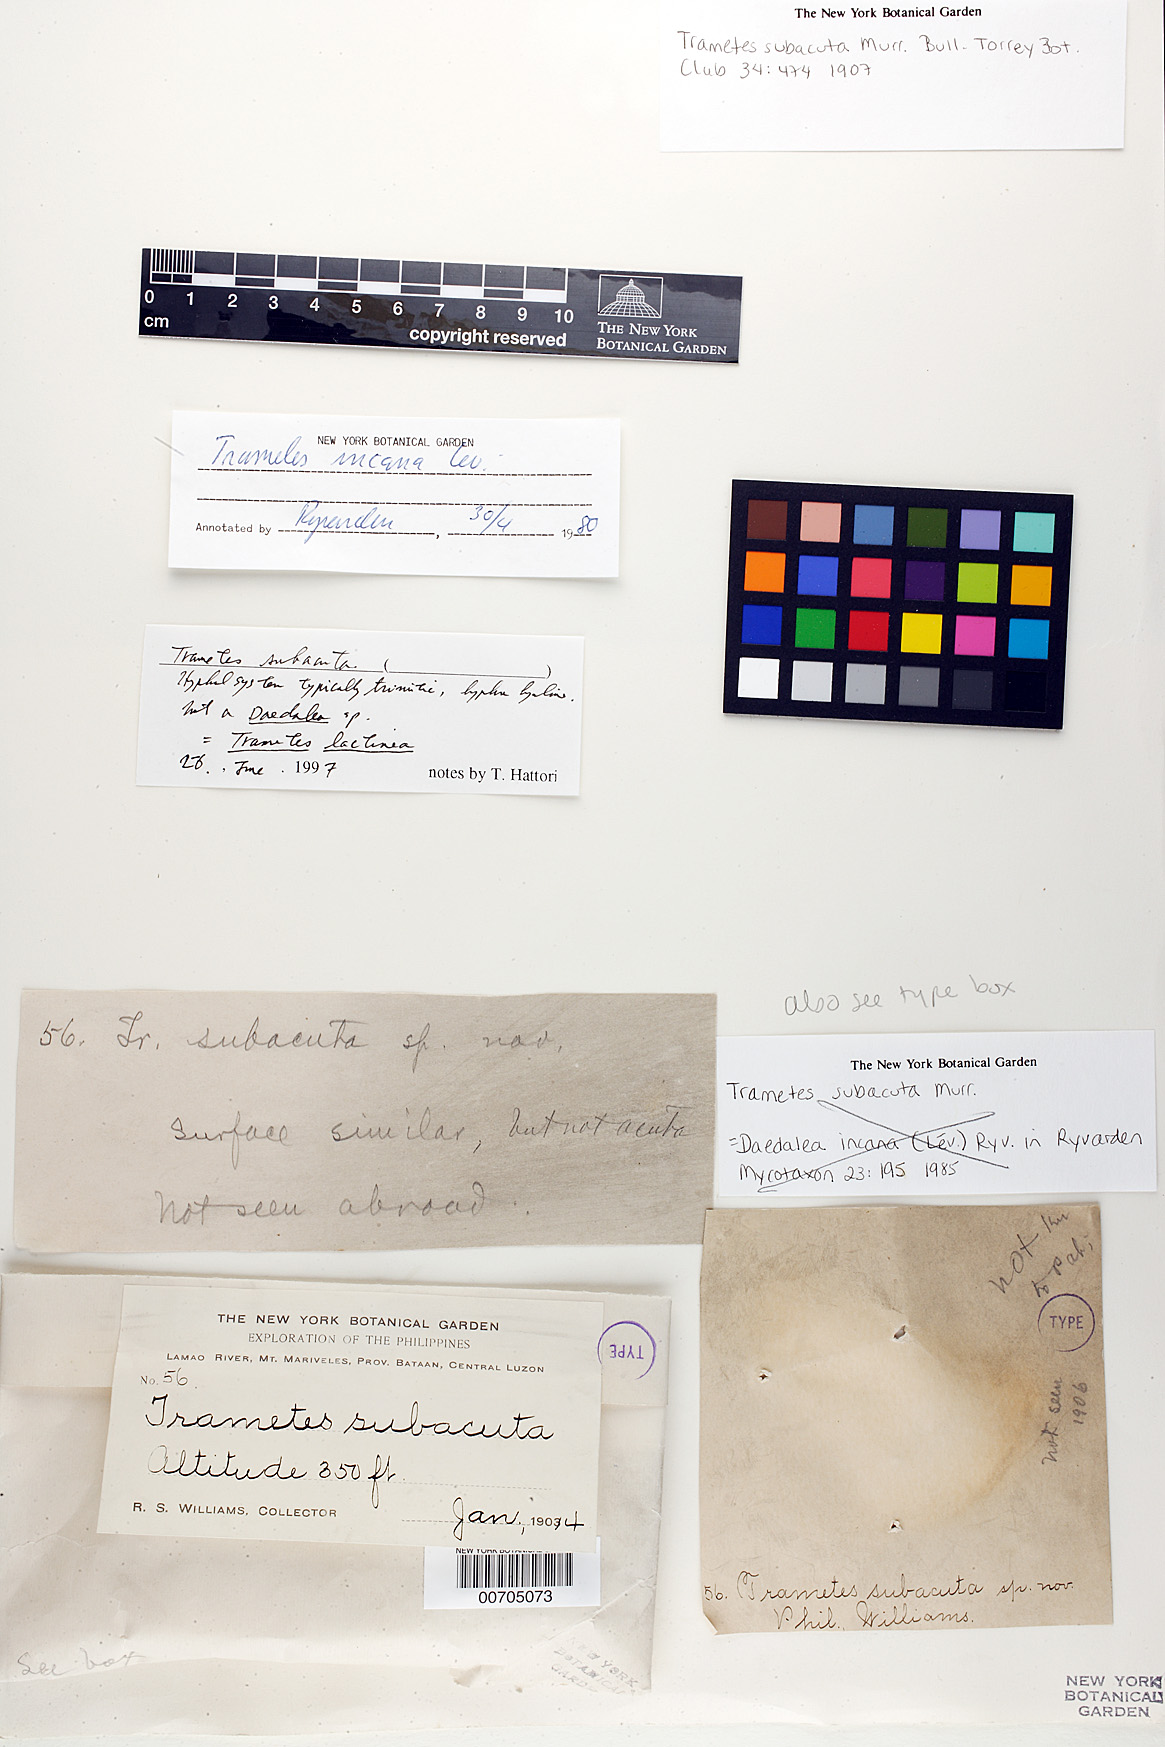 The New York Botanical Garden
Trametes subacuta Murr. Bull. Torrey Bot.
Club 34: 474 1907
0 1 2 3 4 5 6 7 8 9 10
cm
copyright reserved
THE NEW YORK
BOTANICAL GARDEN
NEW YORK BOTANICAL GARDEN
Trametes incana Lev.
Annotated by Ryvarden, 30/4 1980
Trametes subacuta. ( )
Hyphal system typically trimitic, hyphae hyaline.
not a Daedalea sp.
= Trametes lactinea
26. June. 1997 notes by T. Hattori
also see type box
56. Tr. subacuta sp. nov.
Surface similar, but not acuta
Not seen abroad.
The New York Botanical Garden
Trametes subacuta Murr.
=Daedalea incana (Lév.) Ryv. in Ryvarden
Mycotaxon 23: 195 1985
not
to Pat;
TYPE
not seen
1906
56. Trametes subacuta sp. nov.
Phil. Williams.
THE NEW YORK BOTANICAL GARDEN
EXPLORATION OF THE PHILIPPINES
LAMAO RIVER, MT. MARIVELES, PROV. BATAAN, CENTRAL LUZON
No. 56.
Trametes subacuta
Altitude 350 ft.
R. S. WILLIAMS, COLLECTOR
Jan., 1904
TYPE
NEW YORK BOTANICAL
00705073
See box
NEW YORK
BOTANICAL
GARDEN
NEW YORK
BOTANICAL
GARDEN